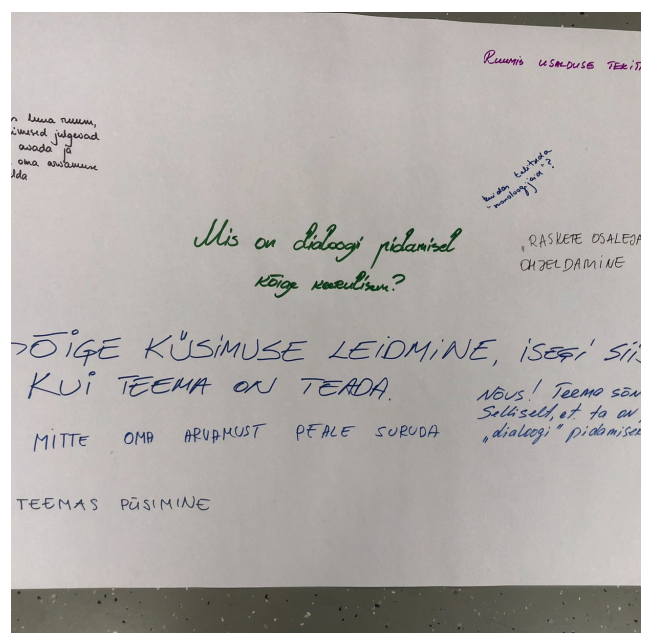 Ruumis USALDUSE TEKIT
luua ruum,
julgevad
avada ja
oma arvamuse
kuidas taltsutada
"monoloogijaid"?
Mis on dialoogi pidamisel
kõige keerulisem?
"RASKETE OSALEJA
OHJELDAMINE
ÕIGE KÜSIMUSE LEIDMINE, ISEGI SIIS
KUI TEEMA ON TEADA.
Nõus! Teema sõn
Selliselt, et ta on
"dialoogi" pidamisek
MITTE OMA ARVAMUST PEALE SURUDA
TEEMAS PÜSIMINE